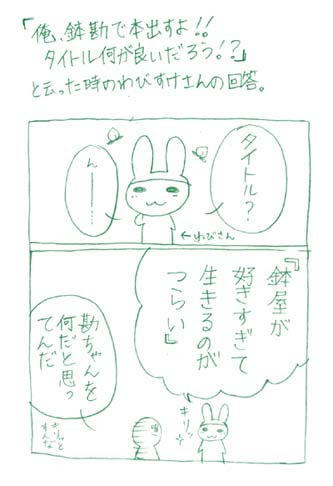 「俺、鉢勘で本出すよ!!
タイトル何が良いだろう!?」
と云った時のわびすけさんの回答。
タイトル?
んー……
←わびさん
『鉢屋が
好きすぎて
生きるのが
つらい』
キリッ
勘ちゃんを
何だと思っ
てんだ
きりっと
すんな